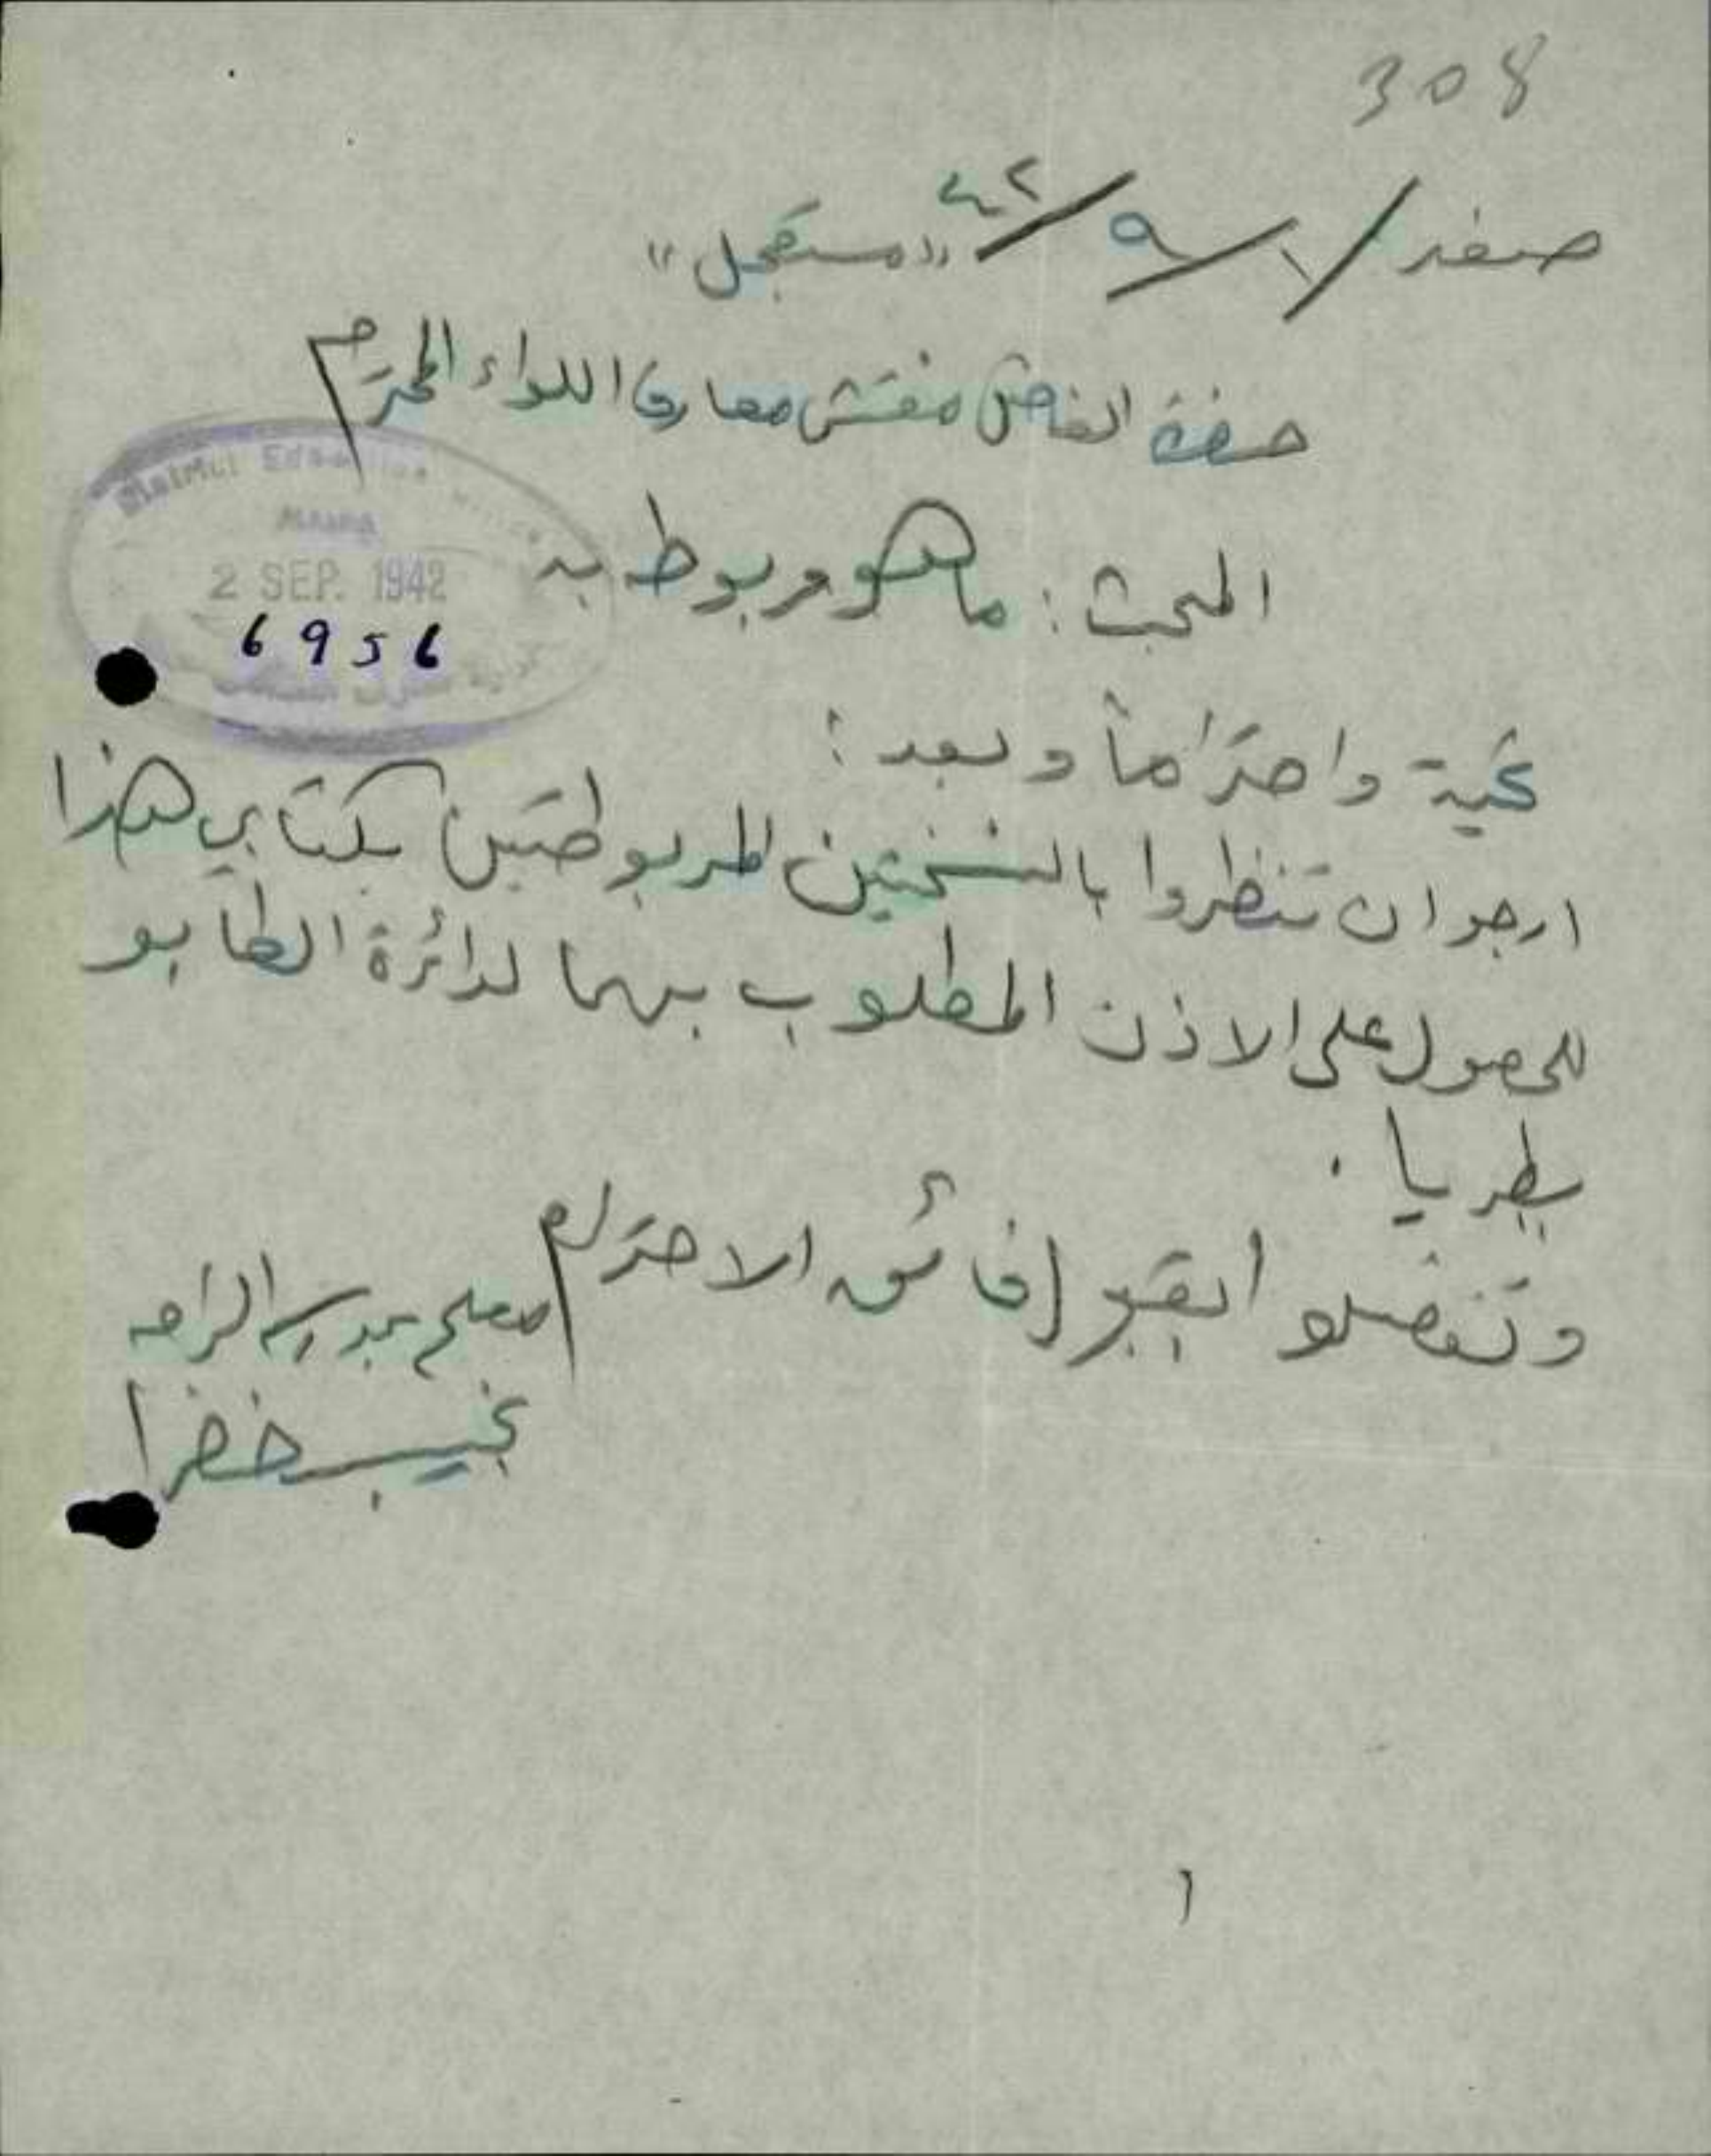 308
صفد / ١ / ٩ / ٤٢ "مستعجل"
حضرة الفاضل مفتش معارف اللواء المحترم
District Education
2 SEP. 1942
6956
المبحث: ما هو مربوط به
تحية واحتراماً وبعد:
ارجو ان تنظروا بالنسختين المربوطتين بكتابي هذا
للحصول على الاذن المطلوب بهما لدائرة الطابو
بطبريا.
وتفضلوا بقبول فائق الاحترام
معلم بمدرسة الرامه
نجيب خضرا
١